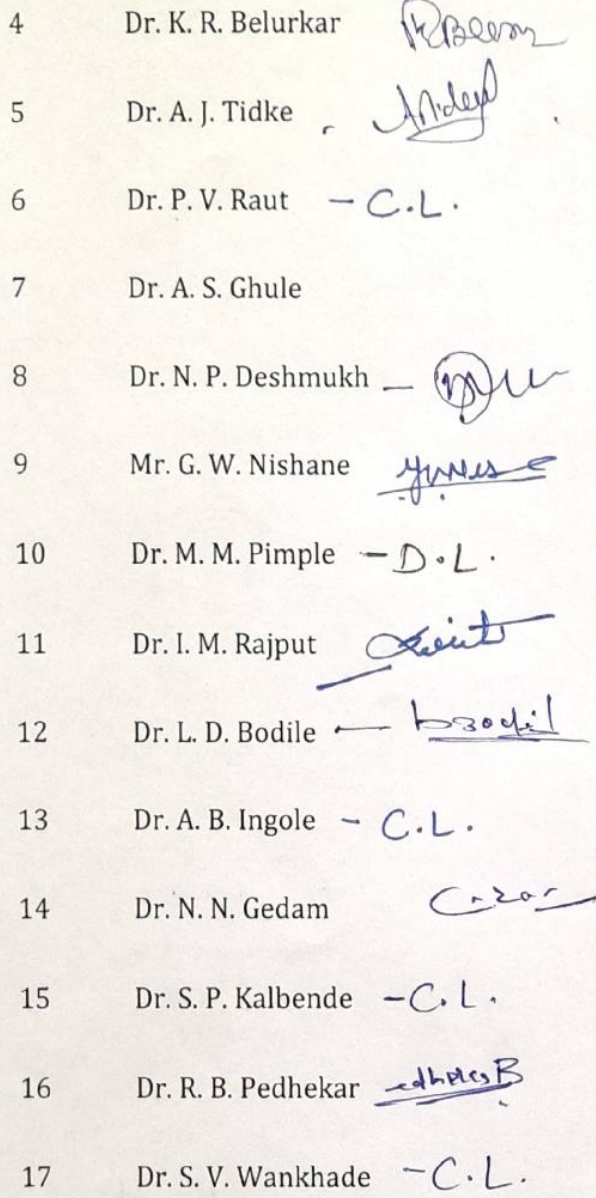 4 Dr. K. R. Belurkar
5 Dr. A. J. Tidke
6 Dr. P. V. Raut - C.L.
7 Dr. A. S. Ghule
8 Dr. N. P. Deshmukh -
9 Mr. G. W. Nishane
10 Dr. M. M. Pimple - D.L.
11 Dr. I. M. Rajput
12 Dr. L. D. Bodile -
13 Dr. A. B. Ingole - C.L.
14 Dr. N. N. Gedam
15 Dr. S. P. Kalbende - C.L.
16 Dr. R. B. Pedhekar
17 Dr. S. V. Wankhade - C.L.